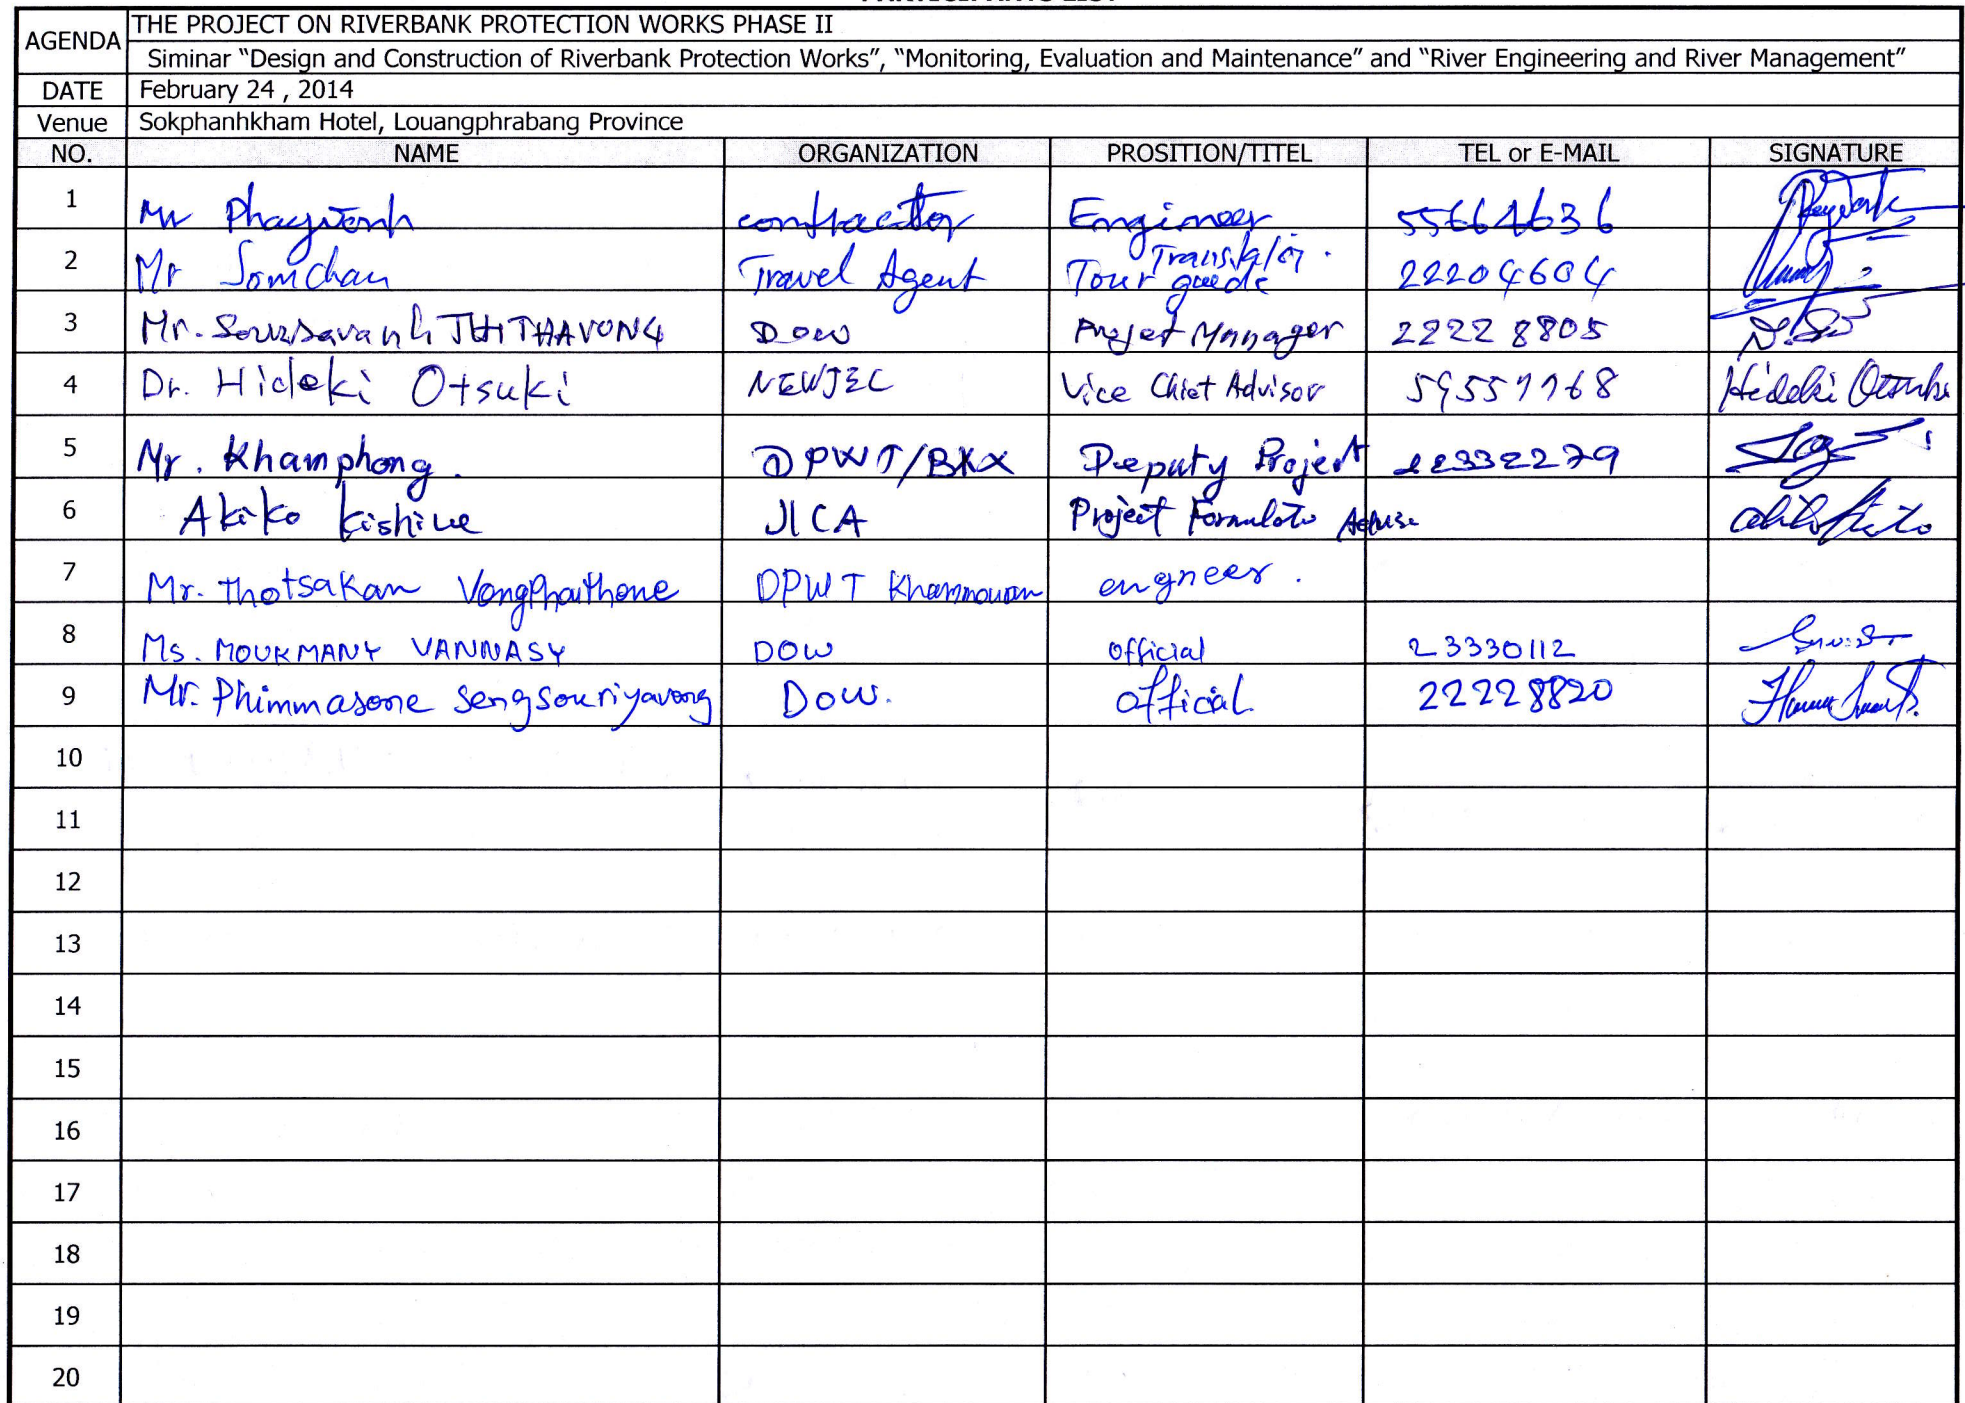 AGENDA THE PROJECT ON RIVERBANK PROTECTION WORKS PHASE II
Siminar “Design and Construction of Riverbank Protection Works”, “Monitoring, Evaluation and Maintenance” and “River Engineering and River Management”
DATE February 24 , 2014
Venue Sokphanhkham Hotel, Louangphrabang Province
NO. NAME ORGANIZATION PROSITION/TITEL TEL or E-MAIL SIGNATURE
1 Mr contractor Engineer 55664636
2 Mr Somchan Travel Agent Translator. Tour guide 22204604
3 Mr. Dow Projet Manager 22228805
4 Dr. Hideki Otsuki NEWJEC Vice Chief Advisor 59557768 Hideki Otsuki
5 Mr. Khamphong. DPWT/BKX Deputy Project 22332279
6 Akiko JICA Project
7 Mr. Thotsakan Vongphaithone DPWT Khammouan engneer.
8 Ms. MOUKMANY VANNASY DOW official 23330112
9 Mr. Phimmasone Sengsouriyavong Dow. official 22228820
10
11
12
13
14
15
16
17
18
19
20